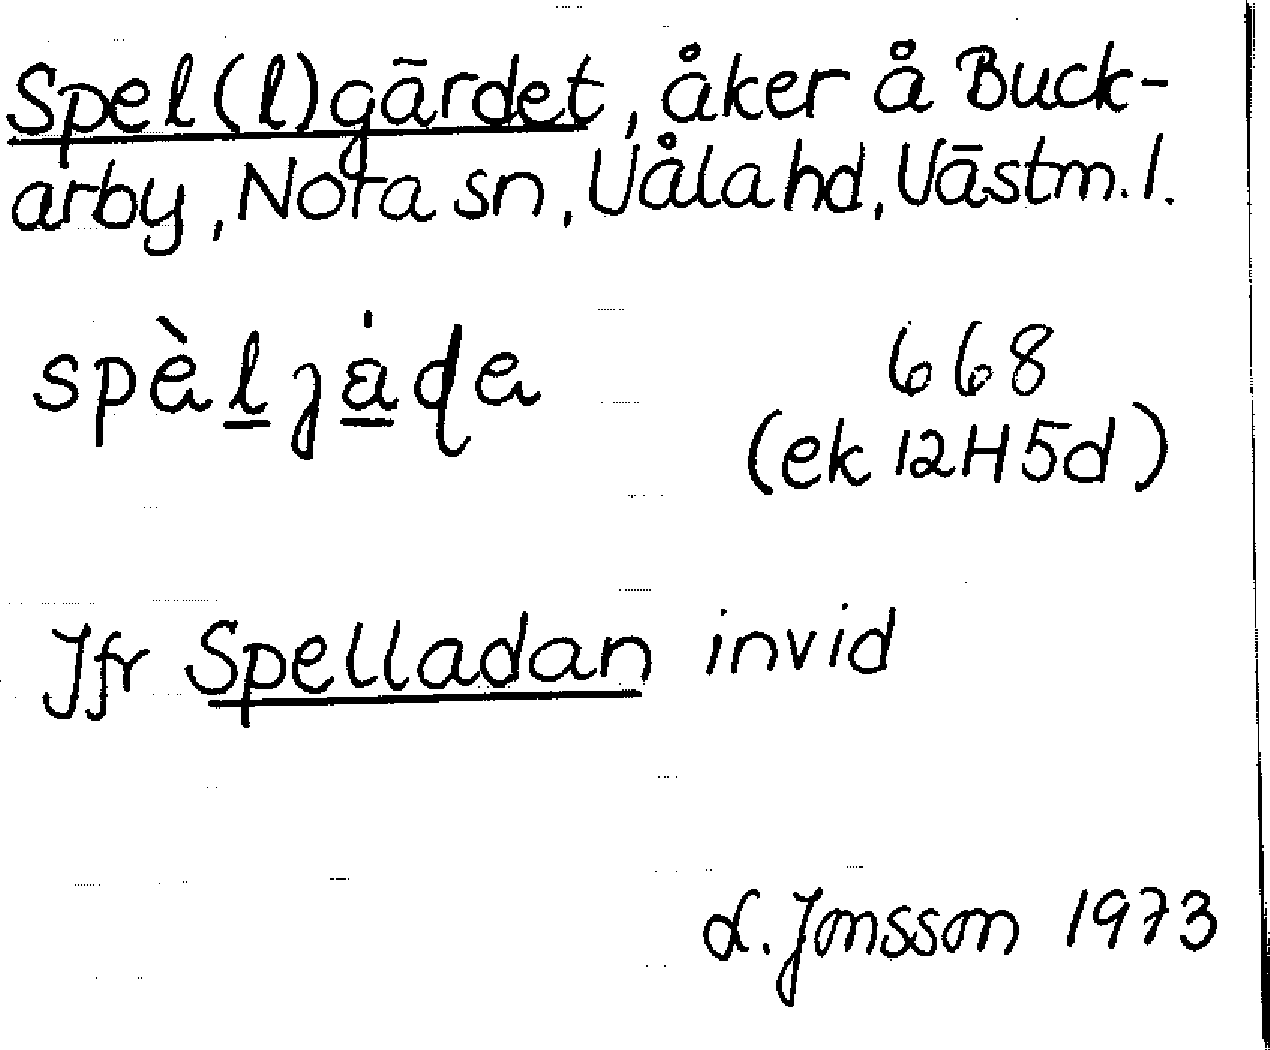 Spel(l)gärdet, åker å Buck-
arby, Nora sn, Våla hd, Västm. l.
spèljàɖe 668
(ek 12H5d)
Jfr Spelladan invid
L. Jonsson 1973